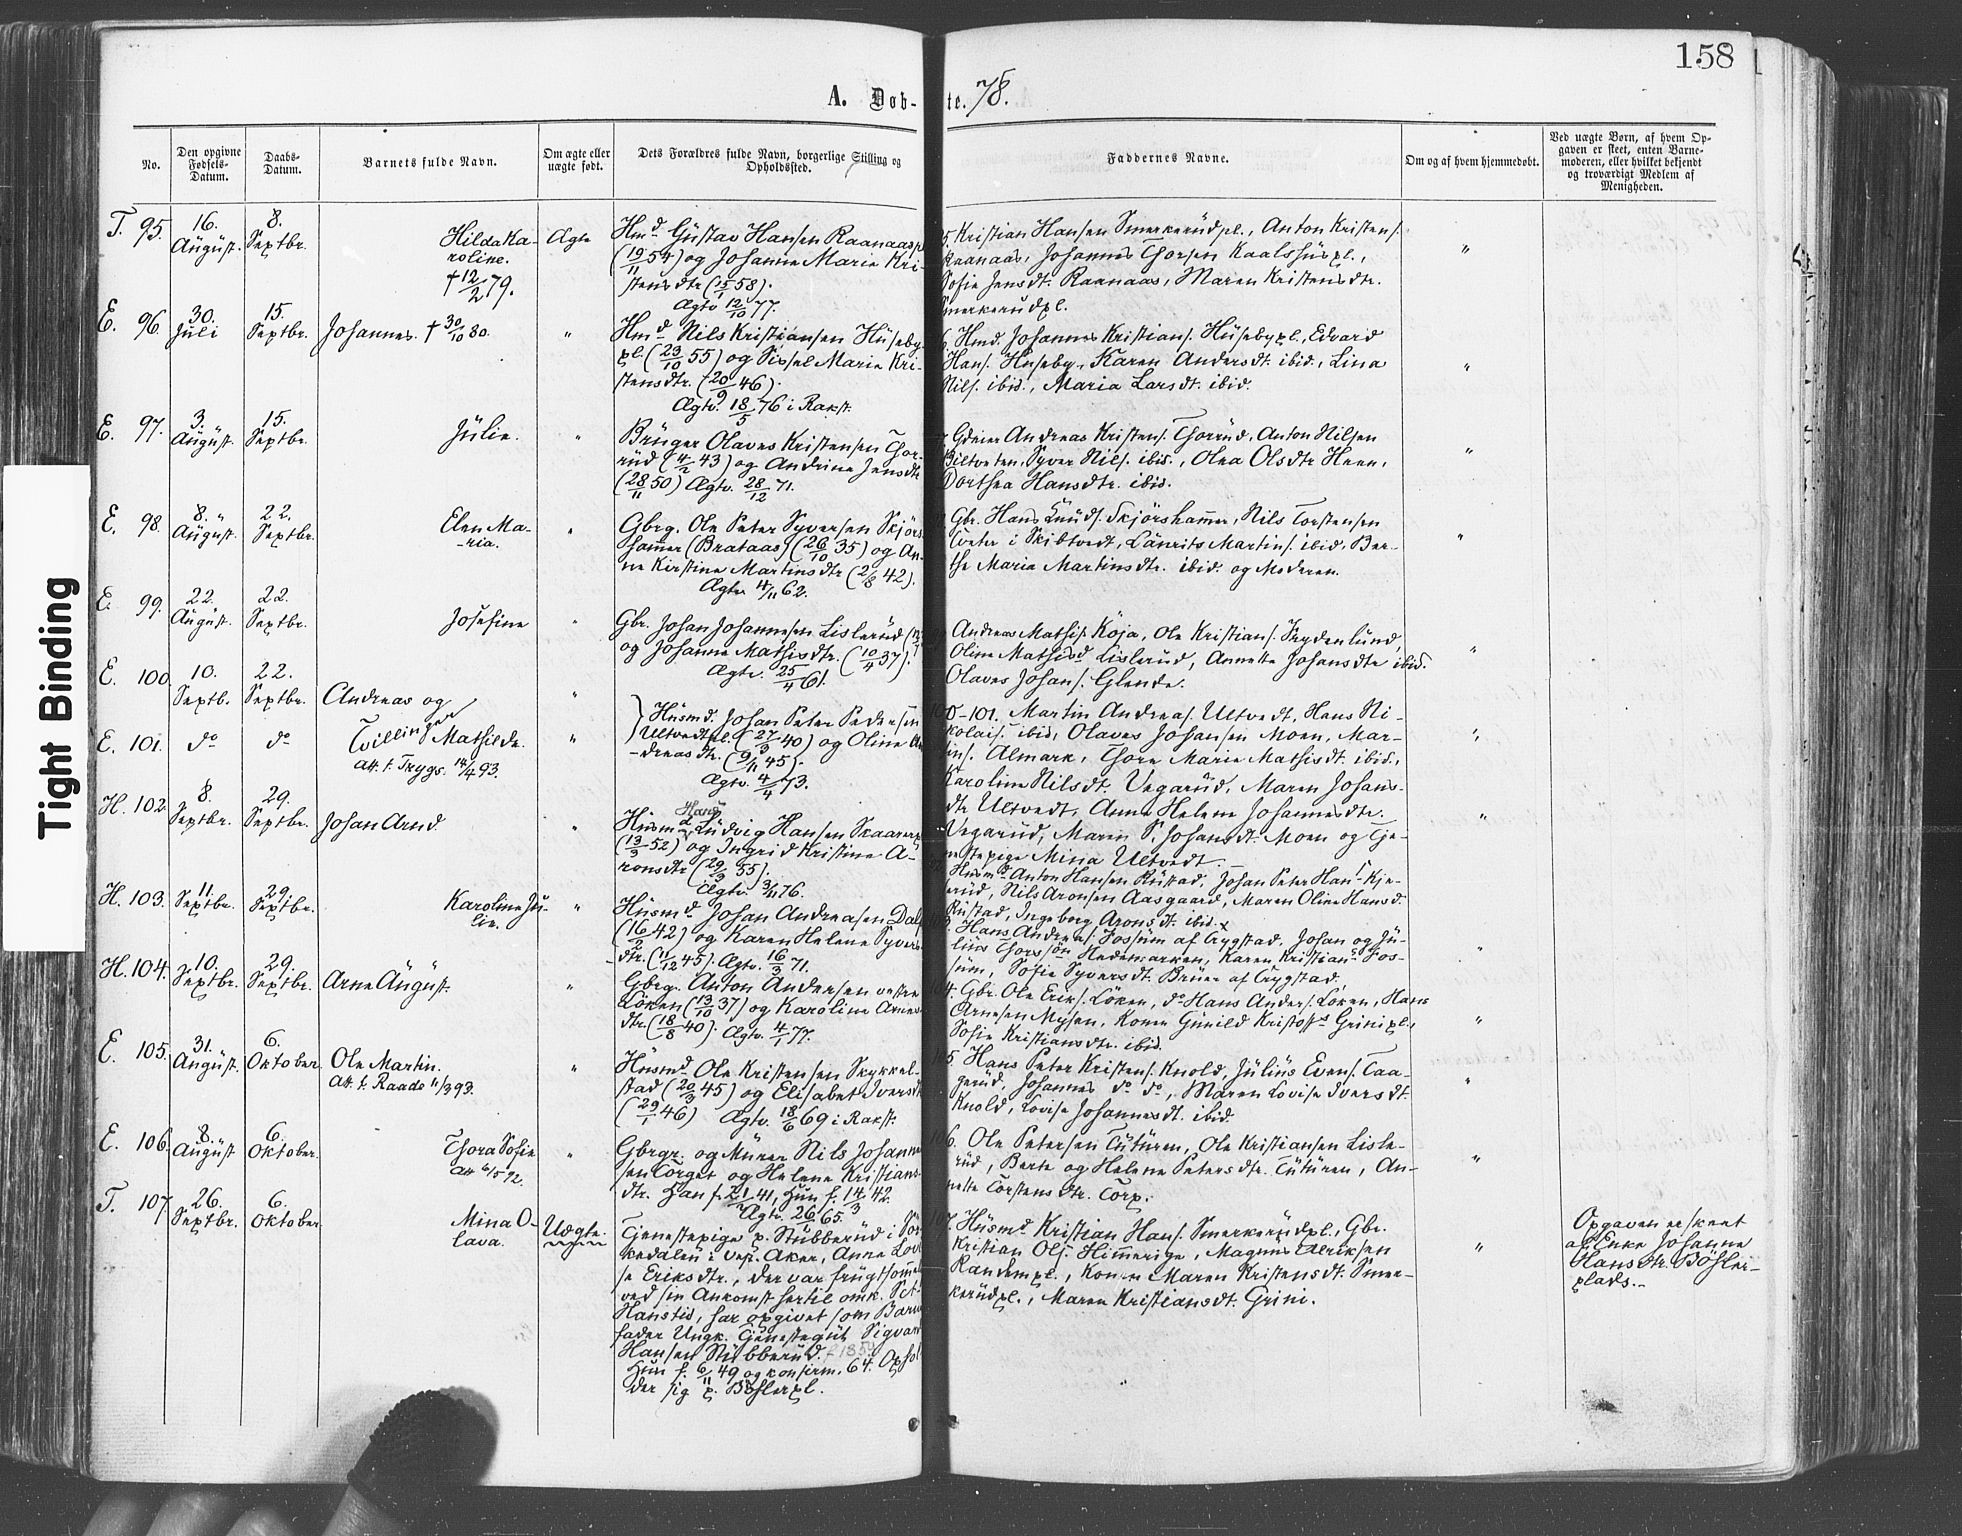 158
A. Døb-te. 78.
No.
Den opgivne Fødsels-Datum.
Daabs-Datum.
Barnets fulde Navn.
Om ægte eller uægte født.
Dets Forældres fulde Navn, borgerlige Stilling og Opholdssted.
Faddernes Navne.
Om og af hvem hjemmedøbt.
Ved uægte Børn, af hvem Opgaven er skeet, enten Barnemoderen, eller hvilket bekjendt og troværdigt Medlem af Menigheden.
Tight Binding
T. 95. 16. August. 8. Septbr. Hilda Karoline. † 12/2 79. Ægte
Hmd. Gustav Hansen Raanaaspl
(19/11 54) og Johanne Marie Kri-
stensdtr (15/1 58).
Ægtv 12/10 77.
Kristian Hansen Smerkerudpl., Anton Kristens.
Raanaas, Johannes Thorsen Kaalshuspl.,
Sofie Jensdt. Raanaas, Maren Kristensdtr.
Smerkerudpl.
E. 96. 30. Juli 15. Septbr. Johannes. † 30/10 80. "
Hmd. Nils Kristiansen Huseby-
pl. (23/10 55) og Sissel Marie Kri-
stensdtr. (20/9 46).
Ægtv. 18/5 76 i Rakst.
Hmd. Johannes Kristians. Husebypl., Edvard
Hans. Huseby, Karen Andersdt. ibid., Lina
Nils. ibid., Maria Larsdt. ibid.
E. 97. 3. August. 15. Septbr. Julie. "
Bruger Olaves Kristensen Thor-
rud (4/2 43) og Andrine Jensdtr
(28/11 50) Ægtv. 28/12 71.
Gdeier Andreas Kristens. Thorrud, Anton Nilsen
Biltveten, Syver Nils. ibid., Olea Olsdtr Heen,
Dorthea Hansdtr. ibid.
E. 98. 8. August. 22. Septbr. Elen Maria. "
Gbrg. Ole Peter Syversen Skjørs-
hamer (Brataas) (26/10 35) og An-
ne Kirstine Martinsdtr (2/8 42).
Ægtv 4/11 62.
Gbr. Hans Knuds. Skjørshamer, Nils Torstensen
Tveter i Skibtvedt, Laurits Martins. ibid, Ber-
the Marie Martinsdtr. ibid. og Moderen.
E. 99. 22. August. 22. Septbr. Josefine "
Gbr. Johan Johannesen Lislerud
og Johanne Mathisdtr. (10/4 37).
Ægtv. 25/4 61.
Andreas Mathis. Köja, Ole Kristians. Frydenlund,
Oline Mathisd. Lislerud, Annette Johansdtr ibid.
Olaves Johans. Glende.
E. 100. 10. Septb. 22. Septbr. Andreas og "
E. 101. do do Tvillinger Mathilde. "
Att. t. Trygs. 14/4 93.
Husmd. Johan Peter Pedersen
Ultvedtpl. (27/3 40) og Oline An-
dreasdtr. (9/11 45).
Ægtv. 4/4 73.
100-101. Martin Andreas. Ultvedt, Hans Ni-
kolais. ibid, Olaves Johansen Moen, Mar-
tins. Almark, Thore Marie Mathisdt. ibid.,
Karoline Nilsdt. Vegarud, Maren Johans-
dtr Ultvedt, Anne Helene Johannesdtr.
Vegarud, Maren S. Johansdt. Moen og Tje-
nestepige Mina Ultvedt.
H. 102. 8. Septbr. 29. Septbr. Johan Arnd. "
Husmd. Ludvig Hansen Skaarer
(13/3 52) og Ingrid Kristine A-
ronsdtr (29/3 55).
Ægtv. 3/11 76.
Husmd. Anton Hansen Rustad, Johan Peter Hans. Kje-
rud, Nils Aronsen Aasgaard, Maren Oline Hansd.
Rustad, Ingeborg Aronsdt. ibid.
H. 103. 11. Septbr. 29. Septbr. Karoline Julie. "
Husmd. Johan Andreasen Dal
(16/2 42) og Karen Helene Syvers-
dtr. (11/12 45). Ægtv. 16/3 71.
Hans Andreas. Fossum af Trygstad, Johan og Ju-
lius Thorssøn Hedemarken, Karen Kristians. Fos-
sum, Sofie Syversdt. Bruer af Trygstad.
H. 104. 10. Septbr. 29. Septbr. Arne August. "
Gbrg. Anton Andersen vestre
Løken (13/10 37) og Karoline Arnes-
dtr. (18/8 40). Ægtv. 4/1 77.
104. Gbr. Ole Eriks. Løken, do Hans Anders. Løken, Hans
Arnesen Mysen, Kone Gunild Kristoffs Grinipl.,
Sofie Kristiansdtr. ibid.
E. 105. 31. August. 6. Oktober. Ole Martin. "
Att. t. Raade 11/3 93.
Husmd. Ole Kristensen Skykkel-
stad (20/3 45) og Elisabet Iversdt
(29/1 46) Ægtv. 18/6 69 i Rakst.
105. Hans Peter Kristens. Knold, Julius Evens. Taa-
gerud, Johannes do do, Maren Lovise Iversdt.
Knold, Lovise Johannesdt. ibid.
E. 106. 8. August 6. Oktober. Thora Sofie "
Att 6/5 92.
Gbrgr. og Murer Nils Johanne-
sen Torget og Helene Kristians-
dtr. Han f. 21/1 41, Hun f. 14/3 42.
Ægtv. 26/6 65.
106. Ole Petersen Tuturen, Ole Kristiansen Lisle-
rud, Berte og Helene Petersdtr. Tuturen, An-
nette Torstensdtr. Torp.
T. 107. 26. Septbr. 6. Oktober. Mina Olava. Uægte.
Tjenestepige p. Stubberud i Sör-
kedalen i vest. Aker, Anne Lovi-
se Eriksdtr., der var frugtsommel
ved sin Ankomst hertil omk. St.
Hanstid, har opgivet som Barne-
fader Ungk. Tjenestegut Sigvart
Hansen Stubberud. f 1859
Hun f. 6/11 49 og konfirm. 64. Ophol
der sig p. Böhlerpl.
107. Husmd Kristian Hans. Smerkerudpl., Gbr.
Kristian Ols. Himmerige, Magnus Ulriksen
Randempl., Konen Maren Kristensdt. Smer-
kerudpl., Maren Kristiansdt. Grini.
Opgaven er skeet
af Enke Johanne
Hansdtr. Böhler-
plads.